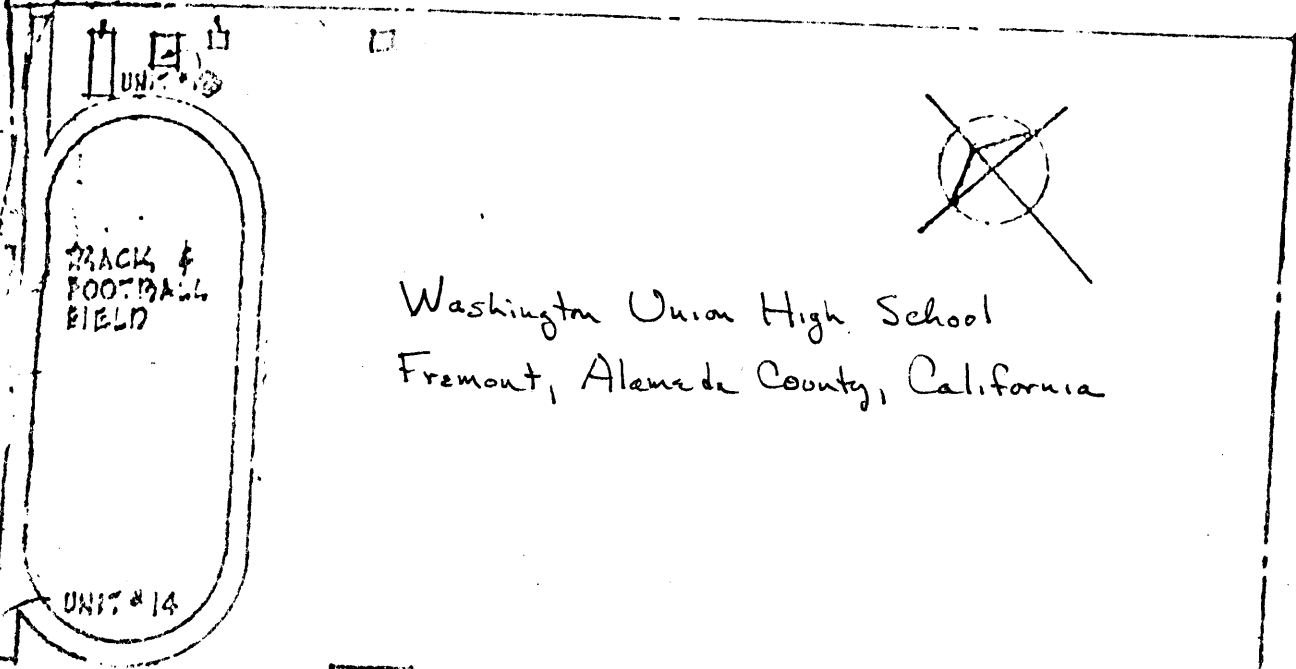 UNIT #
TRACK &
FOOTBALL
FIELD
Washington Union High School
Fremont, Alameda County, California
UNIT #14